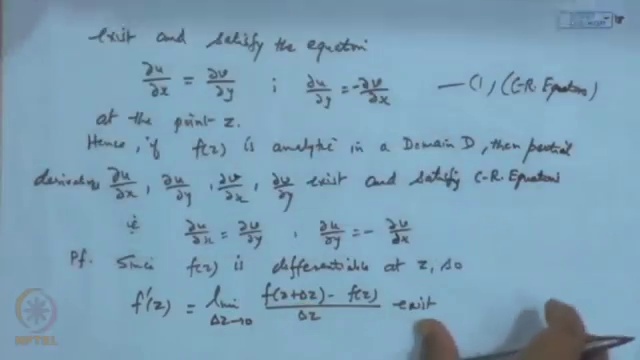 exist and satisfy the equation
∂u/∂x = ∂v/∂y ; ∂u/∂y = -∂v/∂x —(1) (C-R. Equations)
at the point z.
Hence, if f(z) is analytic in a Domain D, then partial
derivatives ∂u/∂x, ∂u/∂y, ∂v/∂x, ∂v/∂y exist and satisfy C-R. Equations
ie ∂u/∂x = ∂v/∂y, ∂u/∂y = - ∂v/∂x
Pf. Since f(z) is differentiable at z, so
f'(z) = lim Δz→0 f(z+Δz) - f(z) / Δz exist
NPTEL